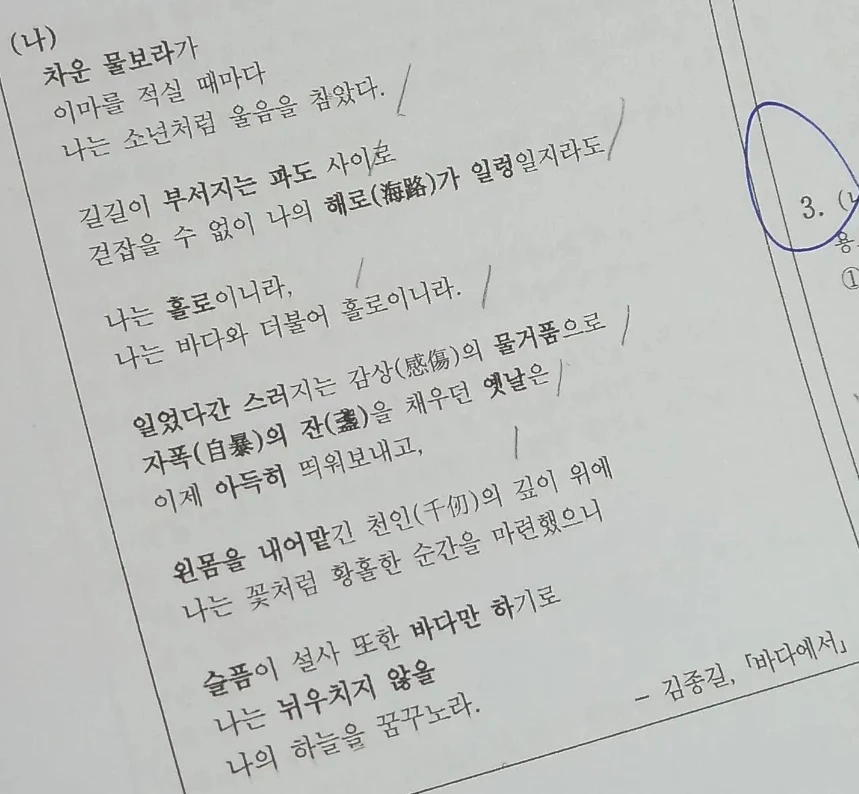 (나)
차운 물보라가
이마를 적실 때마다
나는 소년처럼 울음을 참았다.
길길이 부서지는 파도 사이로
걷잡을 수 없이 나의 해로(海路)가 일렁일지라도
나는 홀로이니라,
나는 바다와 더불어 홀로이니라.
일었다간 스러지는 감상(感傷)의 물거품으로
자폭(自暴)의 잔(盞)을 채우던 옛날은
이제 아득히 띄워보내고,
왼몸을 내어맡긴 천인(千仞)의 깊이 위에
나는 꽃처럼 황홀한 순간을 마련했으니
슬픔이 설사 또한 바다만 하기로
나는 뉘우치지 않을
나의 하늘을 꿈꾸노라.
- 김종길, 「바다에서」
3.
①